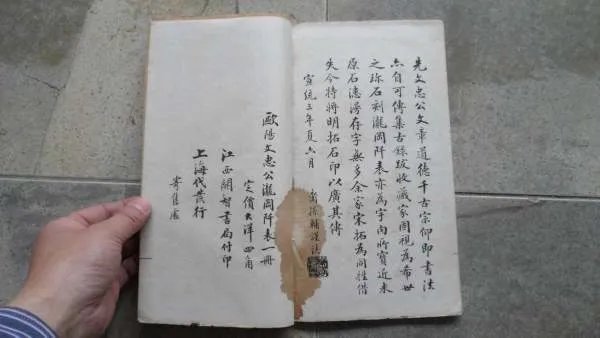 先文忠公文章道德千古宗仰即書法
亦自可傳集古錄跋收藏家同視為希世
之珎石刻瀧岡阡表亦為宇內所寶近來
原石漶漫存字無多余家宋拓為同姓借
失今特將明拓石印以廣其傳
宣統三年夏六月 裔孫輔謹識
歐陽文忠公瀧岡阡表一冊
定價大洋四角
江西開智書局付印
上海代發行
寄售處